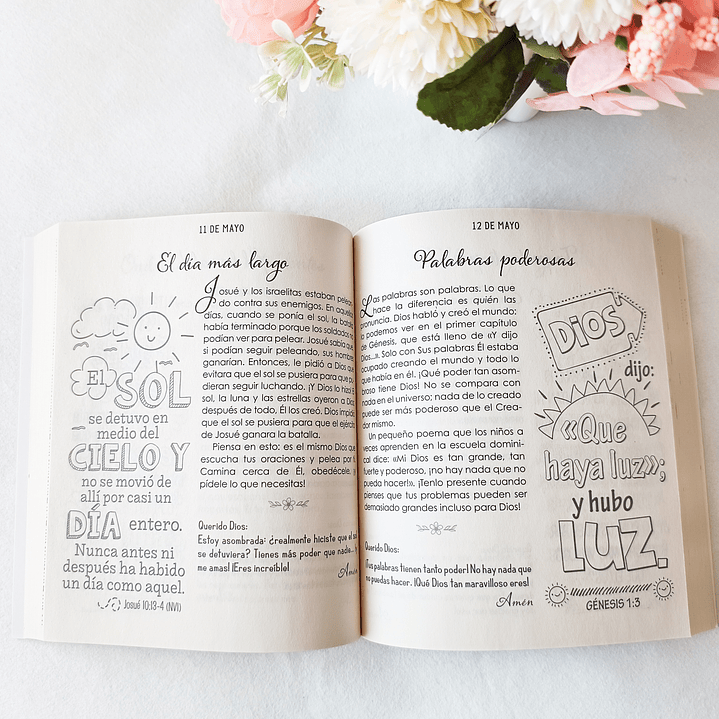 11 DE MAYO
El día más largo
El
SOL
se detuvo en
medio del
CIELO Y
no se movió de
allí por casi un
DÍA entero.
Nunca antes ni
después ha habido
un día como aquel.
Josué 10:13-4 (NVI)
Josué y los israelitas estaban pelean-
do contra sus enemigos. En aquellos
días, cuando se ponía el sol, la batalla
había terminado porque los soldados no
podían ver para pelear. Josué sabía que
si podían seguir peleando, sus hombres
ganarían. Entonces, le pidió a Dios que
evitara que el sol se pusiera para que pu-
dieran seguir luchando. ¡Y Dios lo hizo! El
sol, la luna y las estrellas oyeron a Dios
después de todo, Él los creó. Dios impidió
que el sol se pusiera para que el ejército
de Josué ganara la batalla.
Piensa en esto: es el mismo Dios que
escucha tus oraciones y pelea por ti.
Camina cerca de Él, obedécele, y
pídele lo que necesitas!
Querido Dios:
Estoy asombrada: ¿realmente hiciste que el sol
se detuviera? Tienes más poder que nadie... Y
me amas! ¡Eres increíble!
Amén
12 DE MAYO
Palabras poderosas
Las palabras son palabras. Lo que
hace la diferencia es quién las
pronuncia. Dios habló y creó el mundo:
lo podemos ver en el primer capítulo
de Génesis, que está lleno de «Y dijo
Dios...». Solo con Sus palabras Él estaba
ocupado creando el mundo y todo lo
que había en él. ¡Qué poder tan asom-
broso tiene Dios! No se compara con
nada en el universo; nada de lo creado
puede ser más poderoso que el Crea-
dor mismo.
Un pequeño poema que los niños a
veces aprenden en la escuela domini-
cal dice: «Mi Dios es tan grande, tan
fuerte y poderoso, ¡no hay nada que no
pueda hacer!». ¡Tenlo presente cuando
pienses que tus problemas pueden ser
demasiado grandes incluso para Dios!
Querido Dios:
¡Tus palabras tienen tanto poder! No hay nada que
no puedas hacer. ¡Qué Dios tan maravilloso eres!
Amén
Dios
dijo:
«Que
haya luz»;
y hubo
LUZ.
GÉNESIS 1:3